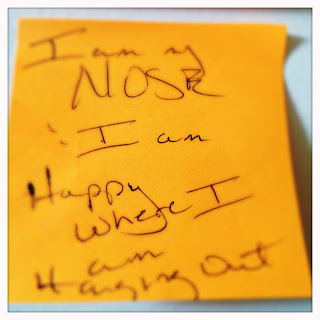 I am my
NOSE
I am
Happy
where I
am
Hanging Out